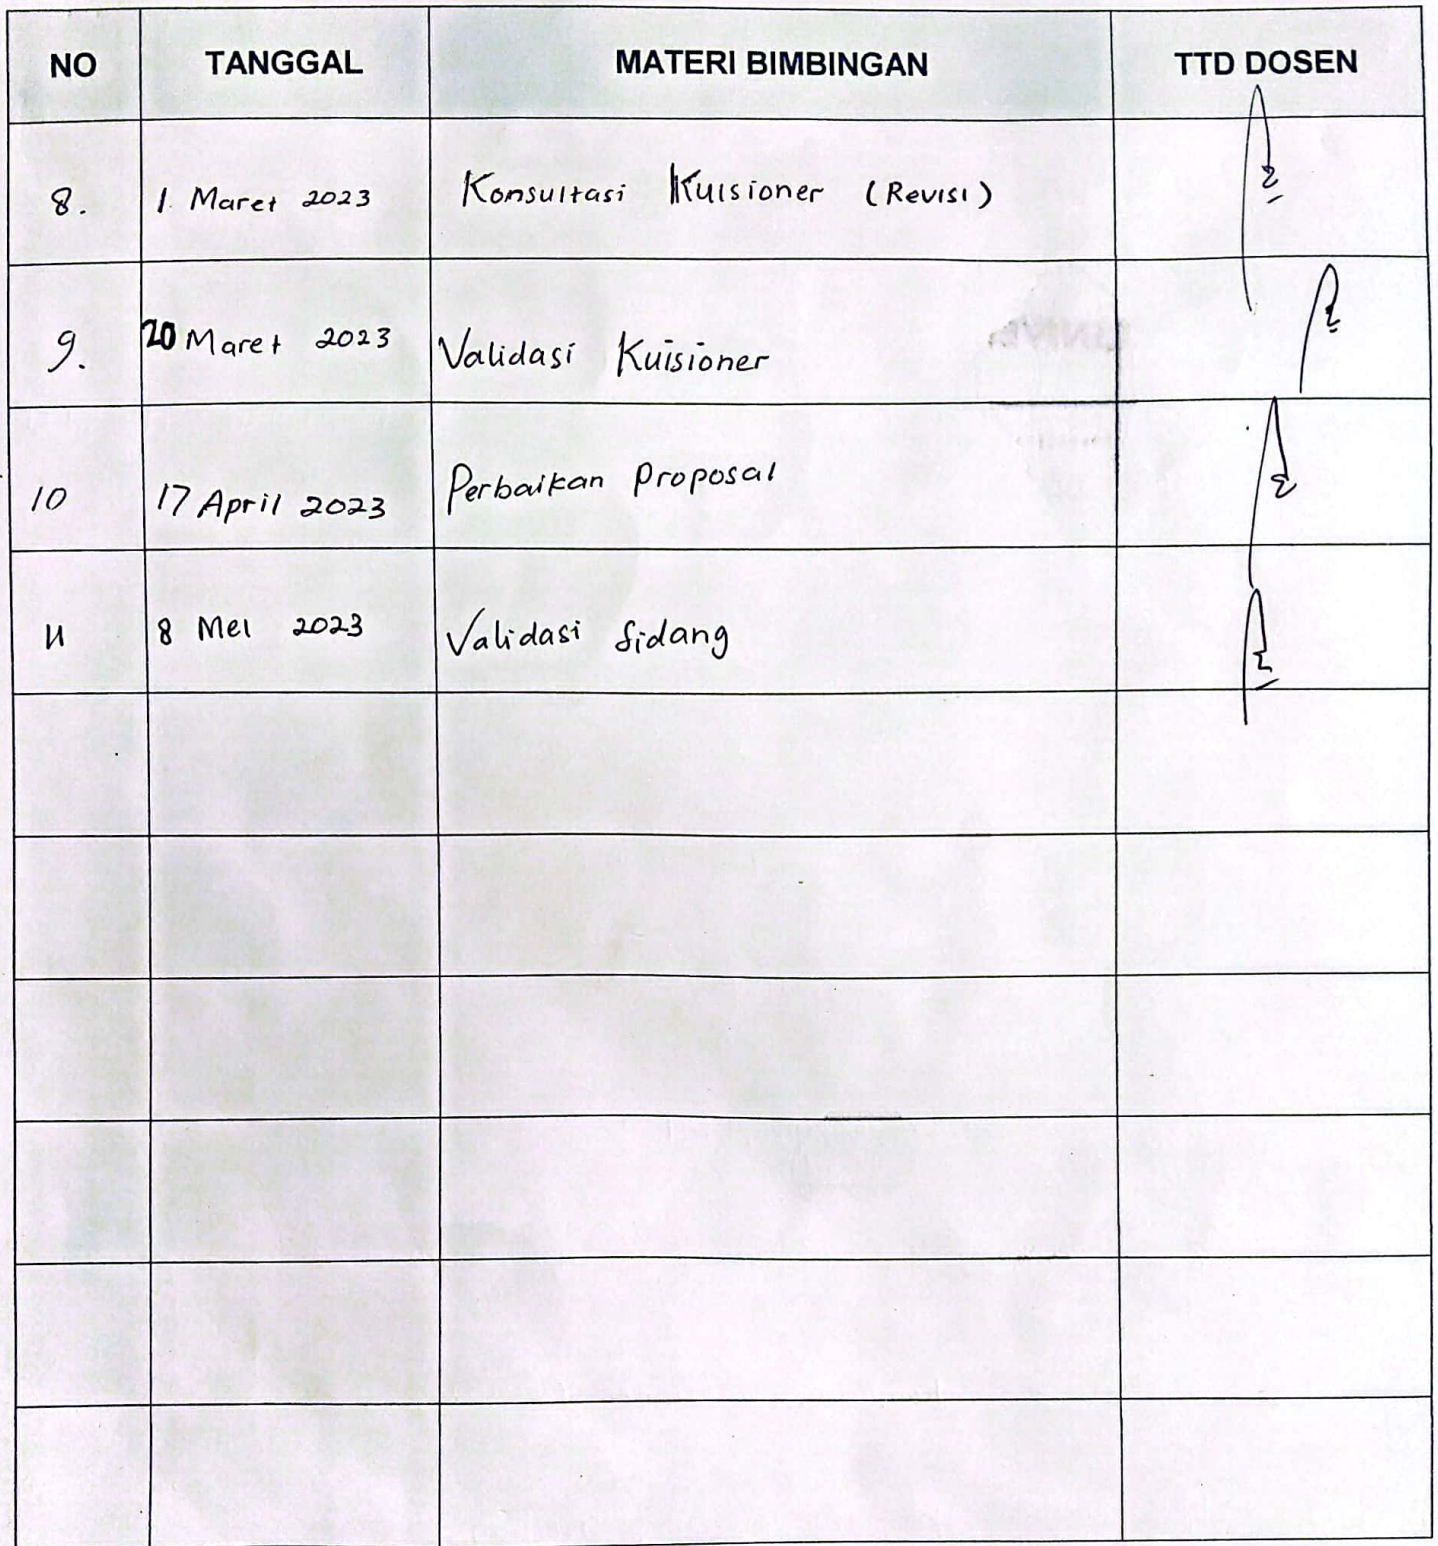 NO TANGGAL MATERI BIMBINGAN TTD DOSEN
8. 1. Maret 2023 Konsultasi Kuisioner (Revisi)
9. 20 Maret 2023 Validasi Kuisioner
10 17 April 2023 Perbaikan Proposal
11 8 Mei 2023 Validasi Sidang